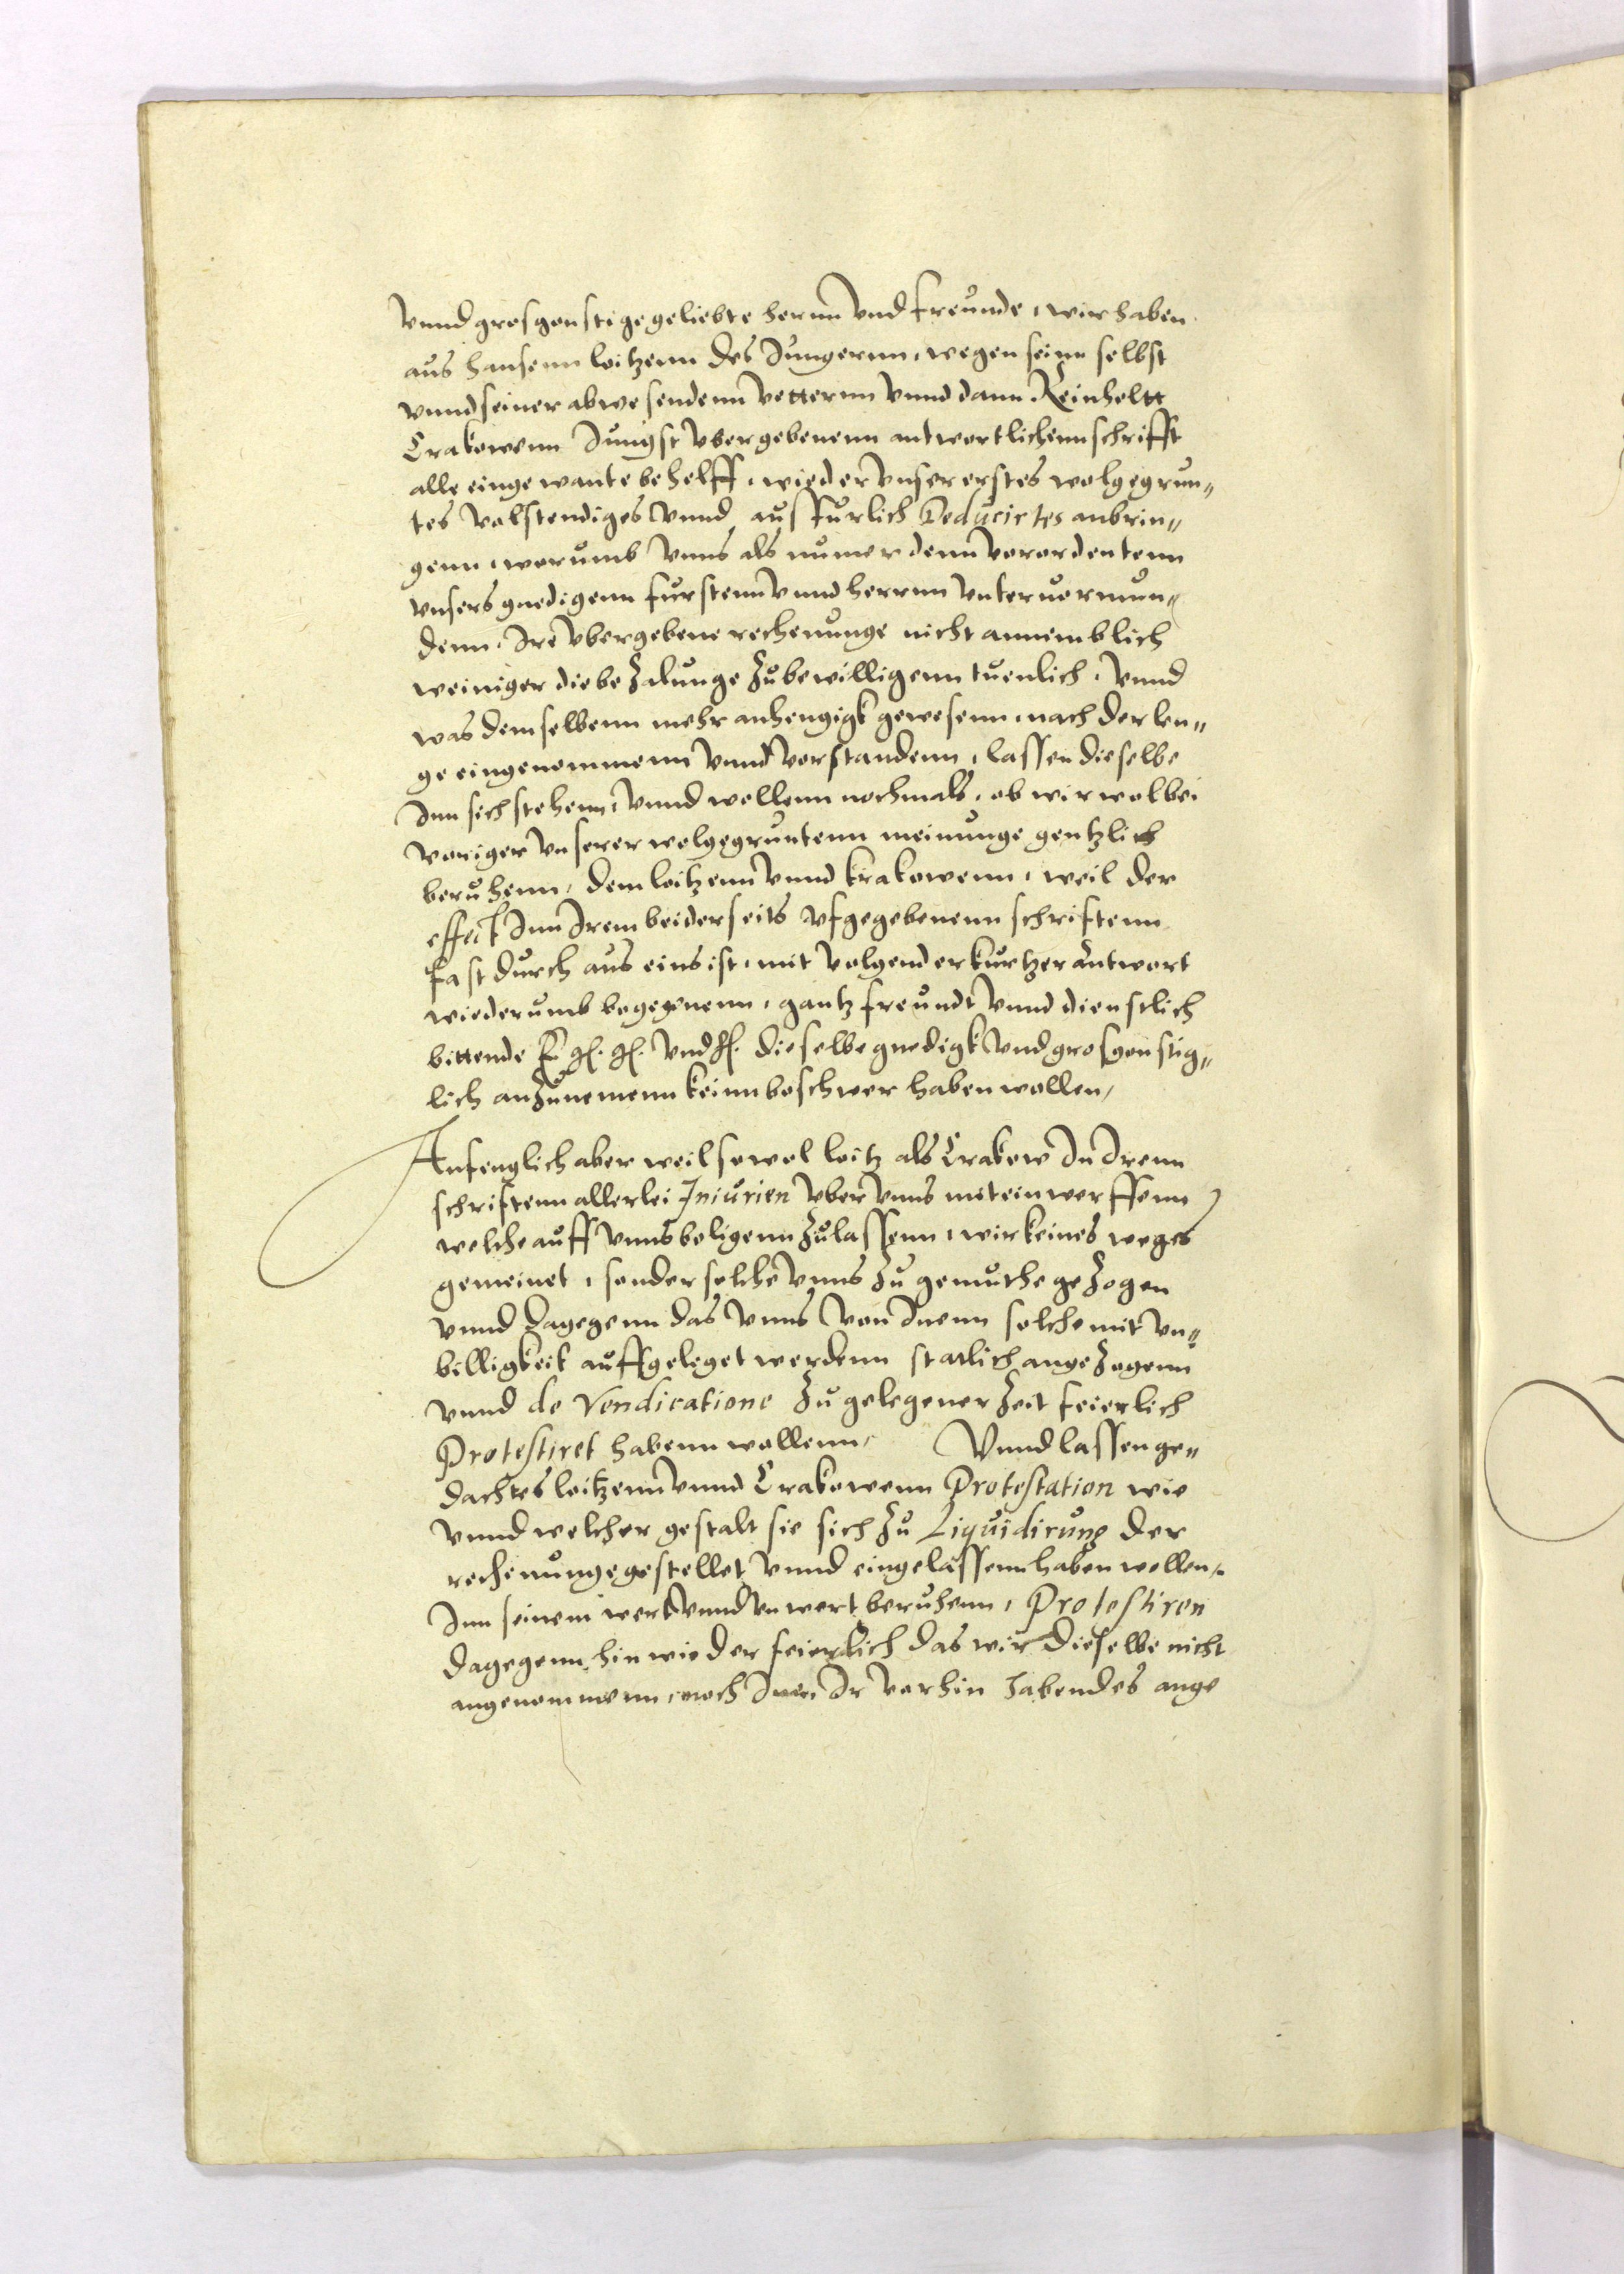 vnnd grosgonstige geliebte hernn vnd freunde, wir haben
aus Hansenn loitzenn des Jungernn, wegen seinn selbst
vnnd seiner abwesendenn vetternn vnnd dann Reinholtt
Crakowenn Jungst vbergebenenn antwortlichenn schrifft
alle eingewante behelff, wieder vnser erstes wolgegrun„
tes volstendiges vnnd ausfurlich Deducirtes anbrin„
genn, worumb vnns als numer denn verordentenn
vnsers gnedigenn furstenn vnnd herrnn vnteruormun„
denn, Ire vbergebene rechenunge nicht annemblich
weiniger die bezalunge zubewilligenn tuenlich, vnnd
was demselbenn mehr anhengigk gewesenn, nach der len„
ge eingenommenn vnnd verstandenn, lassen dieselbe
Inn sich stehenn, vnnd wollenn nochmals, ob wir wol bei
voriger vnserer wolgegruntenn meinunge gentzlich
beruhenn, dem loitzenn vnnd krakowenn, weil der
effect Inn Irem beiderseits vfgegebenenn schriftenn
fast durch aus eins ist, mit volgender kurtzer Antwort
wiederumb begegenenn, gantz freundt vnnd dienstlich
bittende E. G. G. vnd H. dieselbe gnedigk vnd grosgonstig„
lich anzunemenn kein beschwer haben wollen,
Anfenglich aber weil sowol loitz als Crakow In Irenn
schriftenn allerlei Iniurien vber vnns mit einwerffenn
welche auff vnns beligenn zulassenn, wir keines weges
gemeinet, sonder solche vnns zu gemuthe gezogen
vnnd dagegenn das vnns von Inenn solche mit vn„
billigkeit auffgeleget werdenn statlich angezogenn
vnnd de Vendicatione zu gelegener Zeit feierlich
Protestiret habenn wollenn, Vnnd lassen ge„
dachtes loitzenn vnnd Crakowenn Protestation wie
vnnd welcher gestalt sie sich zu Liquidirung der
rechenunge gestellet vnnd eingelassenn haben wollen,
Inn seinem wert vnnd vnwert beruhenn, Protestiren
dagegenn hin wieder feierlich das wir dieselbe nicht
angenommenn, noch Inen Ir vorhin habendes ange